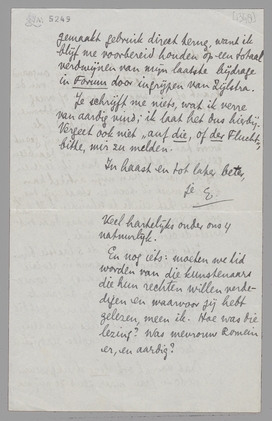 5249
gemaakt gebruik direct terug, want ik
blijf me voorbereid houden op een totaal
verdwijnen van mijn laatste bijdrage
in Forum door ingrijpen van Zijlstra.
Je schrijft me niets, wat ik verre
van aardig vind; ik laat het dus hierbij.
Vergeet ook niet „auf die, of der Flucht",
bitte, mir zu melden.
In haast en tot later beter,
je E.
Veel hartelijks onder ons 4
natuurlijk.
En nog iets: moeten we lid
worden van die kunstenaars
die hun rechten willen verde-
digen en waarvoor jij hebt
gelezen, meen ik. Hoe was die
lezing? Was mevrouw Romein
er, en aardig?